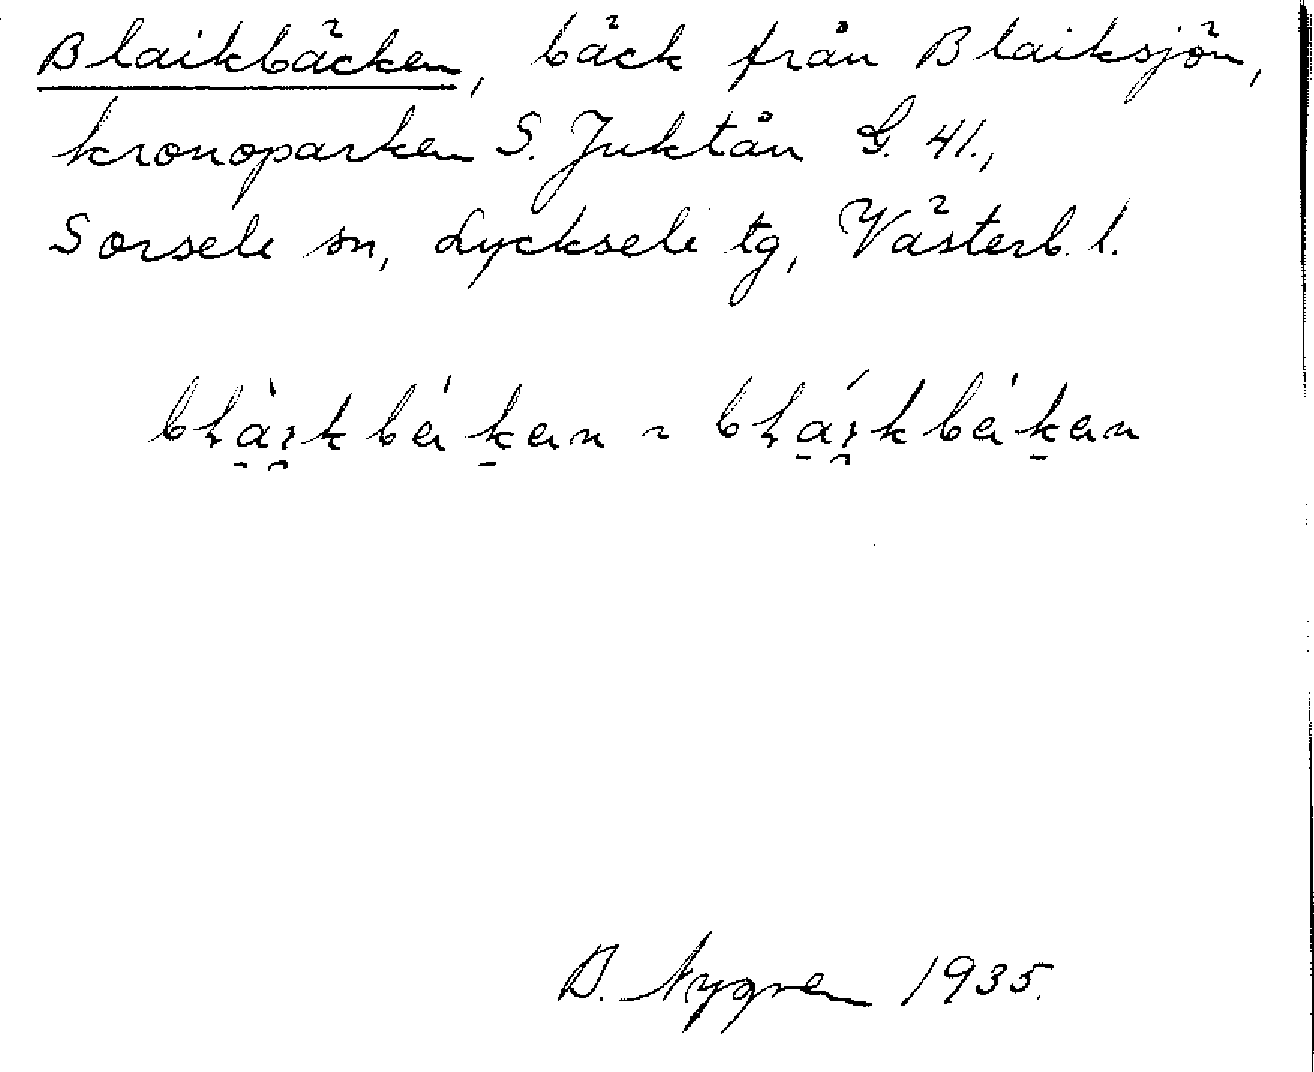 Blaikbäcken, bäck från Blaiksjön,
kronoparken S. Juktån G. 41.,
Sorsele sn, Lycksele tg, Västerb. l.
B. Nygren 1935.